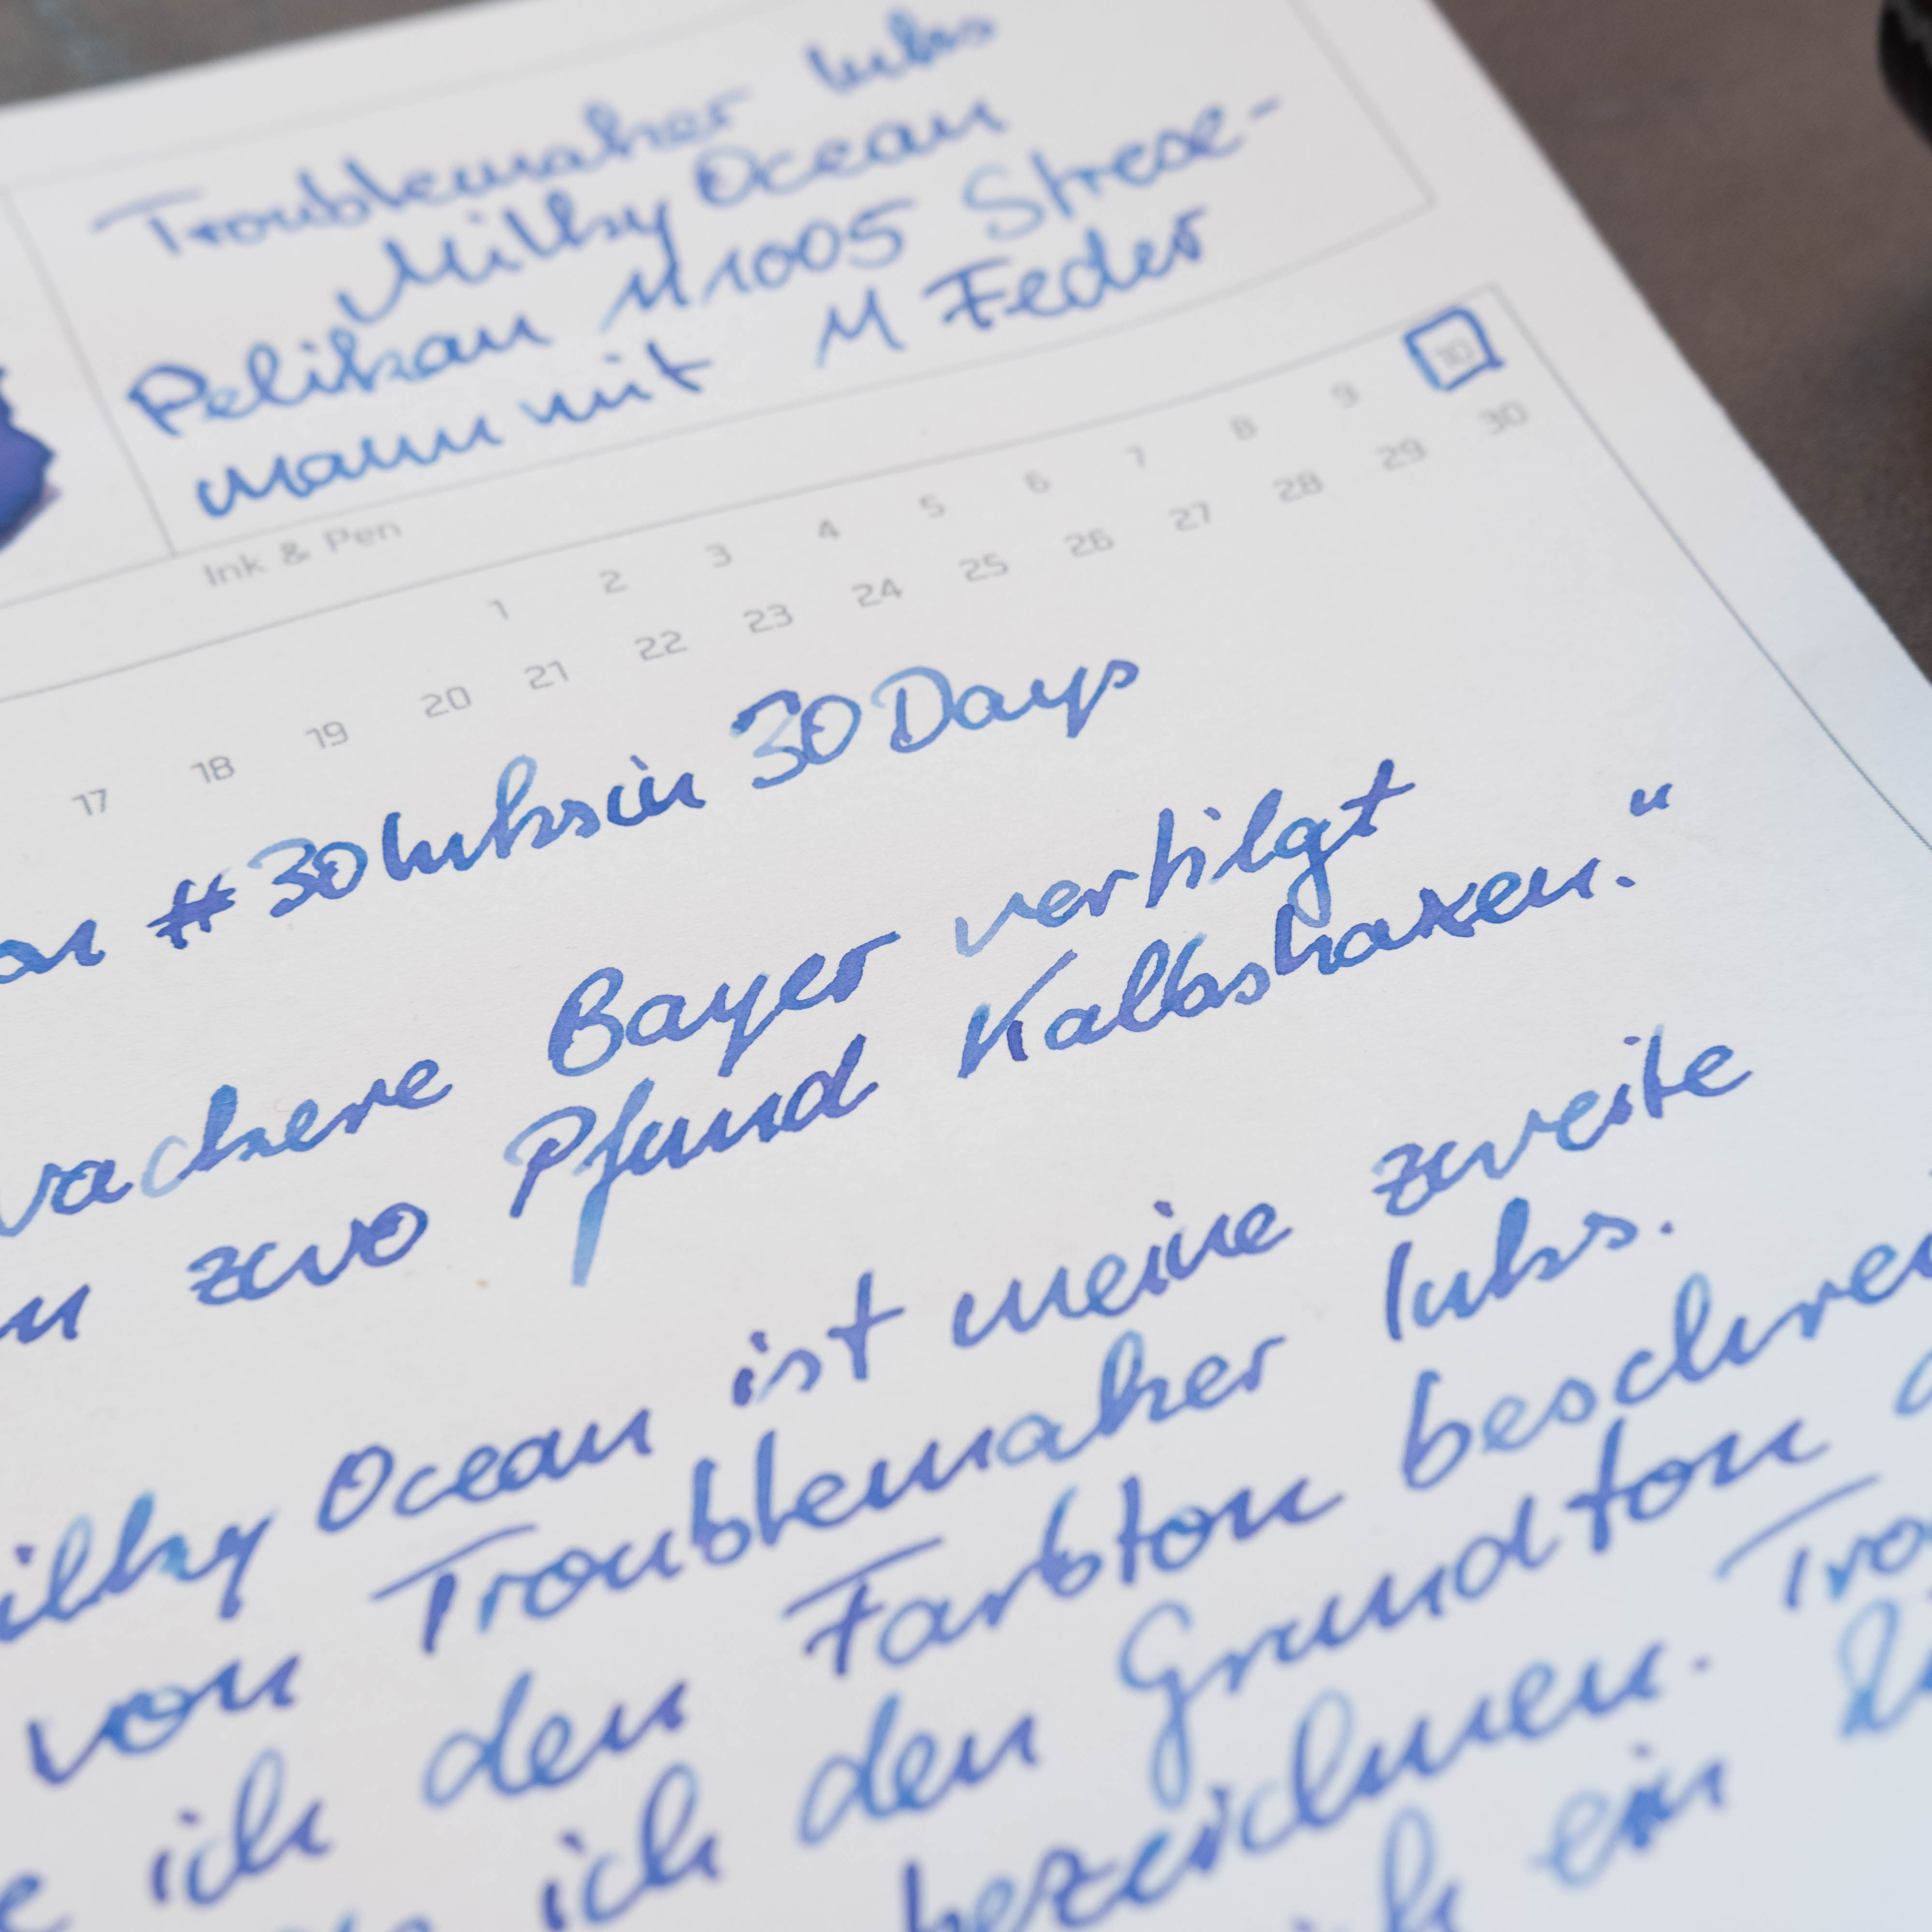 Troublemaker Inks
Milky Ocean
Pelikan M1005 Strese-
mann mit M Feder
Ink & Pen
1 2 3 4 5 6 7 8 9 10
17 18 19 20 21 22 23 24 25 26 27 28 29 30
#30Inksin30Days
Bayer vertilgt
zwo Pfund Kalbshaxen."
Ocean ist meine zweite
von Troublemaker Inks.
ich den Farbton
ich den Grundton
bezeichnen.
ein